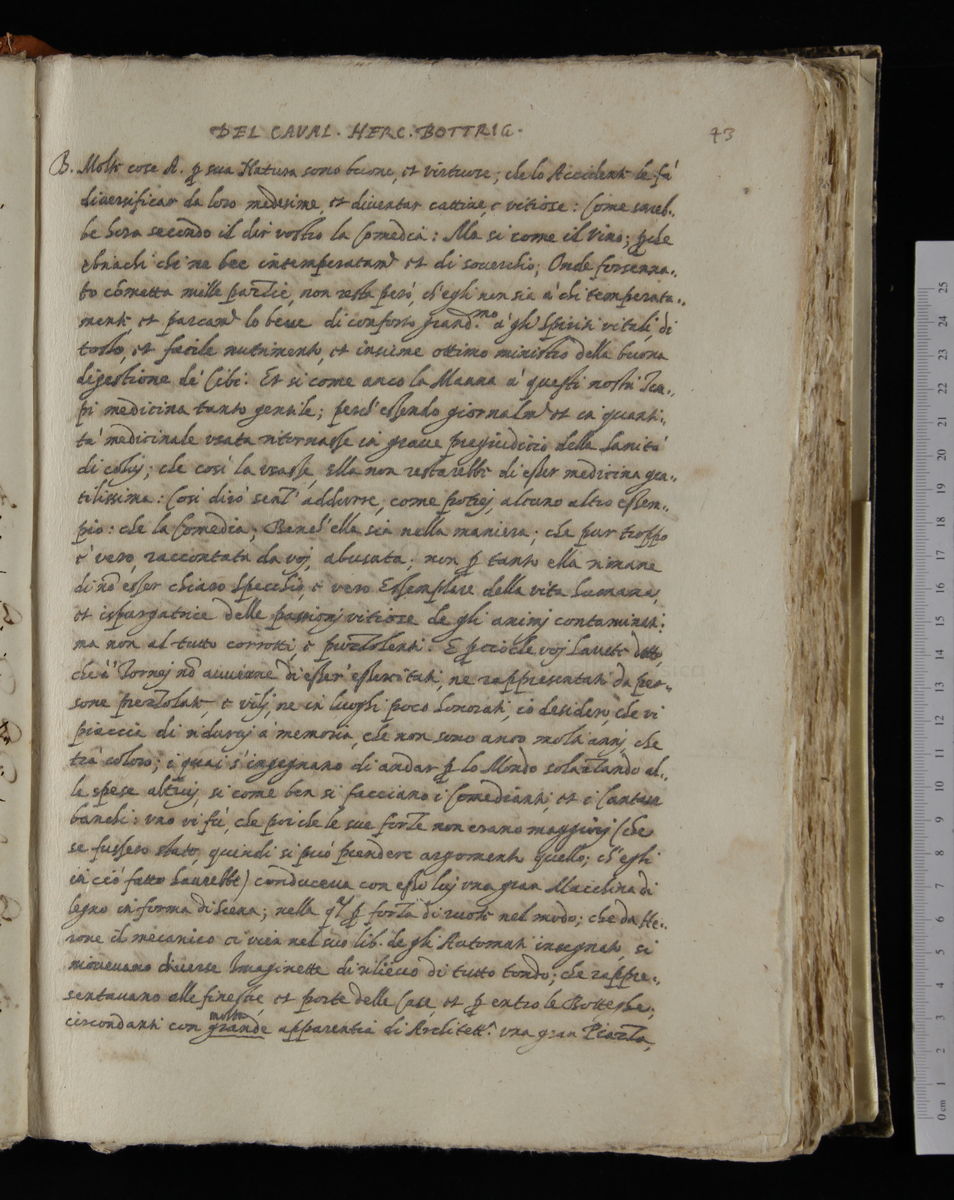 DEL CAVAL. HERC. BOTTRIG.
43
B. Molte cose A. p sua Natura sono buone, et virtuose; che lo Accidente le fà
diversificar da loro medesime, et diventar cattive, e vitiose: Come sareb-
be hora secondo il dir vostro la Comedia: Ma si come il Vino; pche
ebriachi chi ne bee intemperatam.e et di soverchio; Onde forsenna-
to cometta mille pazzie, non resta però, ch'egli non sia à chi temperata-
mente, et parcam.e lo beve di conforto grand.mo à gli Spiriti vitali, di
tosto, et facile nutrimento, et insieme ottimo ministro della buona
digestione de' Cibi. Et si come anco la Manna à questi nostri Tem-
pi medicina tanto gentile; perch'essendo giornalm.e et in quanti-
tà medicinale usata ritornasse in grave pregiudicio della Sanità
di colui; che così la usasse, Ella non restarebbe di esser medicina gen-
tilissima: Così dirò senz' addurre, come potrei, alcuno altro essem-
pio: che la Comedia; Bench'ella sia nella maniera; che pur troppo
è vero, raccontata da voi, abusata; non p tanto ella rimane
di nõ esser chiaro Specchio, e vero Essemplare della vita humana,
et ispurgatrice delle passioni vitiose de gli animi contaminati;
ma non al tutto corrotti, e puzzolenti. E pcioche voi havete detto,
che a' Tornei nõ avviene di esser' essercitati, ne rappresentati da per-
sone prezzolate, e vili, ne in luoghi poco honorati, io desidero, che vi
piaccia di ridurvi à memoria, che non sono anco molti anni, che
trà coloro; i quai s'ingegnano di andar p lo Mondo solazzando al-
le spese altrui, si come ben si facciano i Comedianti et i Cantam
banchi: uno vi fù, che poi che le sue forze non erano maggiori (che
se fussero state, quindi si può prendere argomento quello; ch'egli
in ciò fatto haurebbe) conduceva con esso lui una gran Macchina di
legno in forma di Scena; nella ql p forza di ruote nel modo; che da He-
rone il mecanico ci vien nel suo lib. de gli Automati insegnato, si
movevano diverse Imaginette di rilievo di tutto tondo; che rappre-
sentavano alle finestre, et porte delle Case, et p entro le Botteghe;
circondanti con grande molta apparentia di Architett.a una gran Piazza,